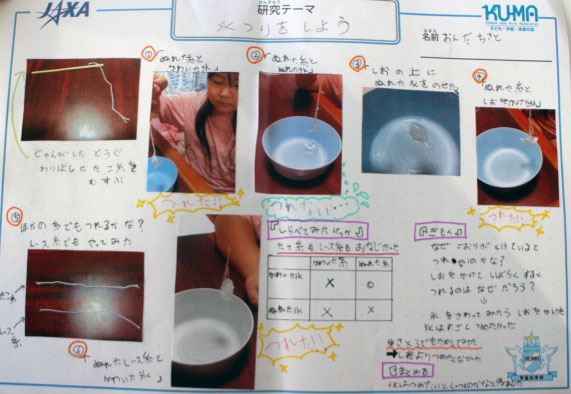 JAXA
研究テーマ
氷つりをしよう
KUMA
子ども・宇宙・未来の会
名前 おんだ ちさと
①
ぬれた糸と
かわいた氷
つれた!!
②
ぬれた糸と
ぬれた氷
つれない…
③
しおの上に
ぬれた氷をのせた
④
ぬれた糸と
つれた!!
じゅんびした どうぐ
わりばしに たこ糸を
むすぶ
⑤
ほかの糸でもつれるかな?
レース糸でも やってみた
たこ糸
レース糸
⑥
ぬれたレース糸と
かわいた氷
つれた!!
しらべてみた けっか
たこ糸もレース糸もおなじだった
かわいた糸
ぬれた糸
かわいた氷
×
○
ぬれた氷
×
×
ぎもん
なぜ こおりが とけていると
つれないのかな?
しおをかけて しばらくすると
つれるのは なぜ だろう?
↓
氷を さわってみたら しおをかけた
氷はすごくつめたかった
さとうでもためしてみた
しおよりつめたくなかった
まとめ
KUMA
宇宙の学校